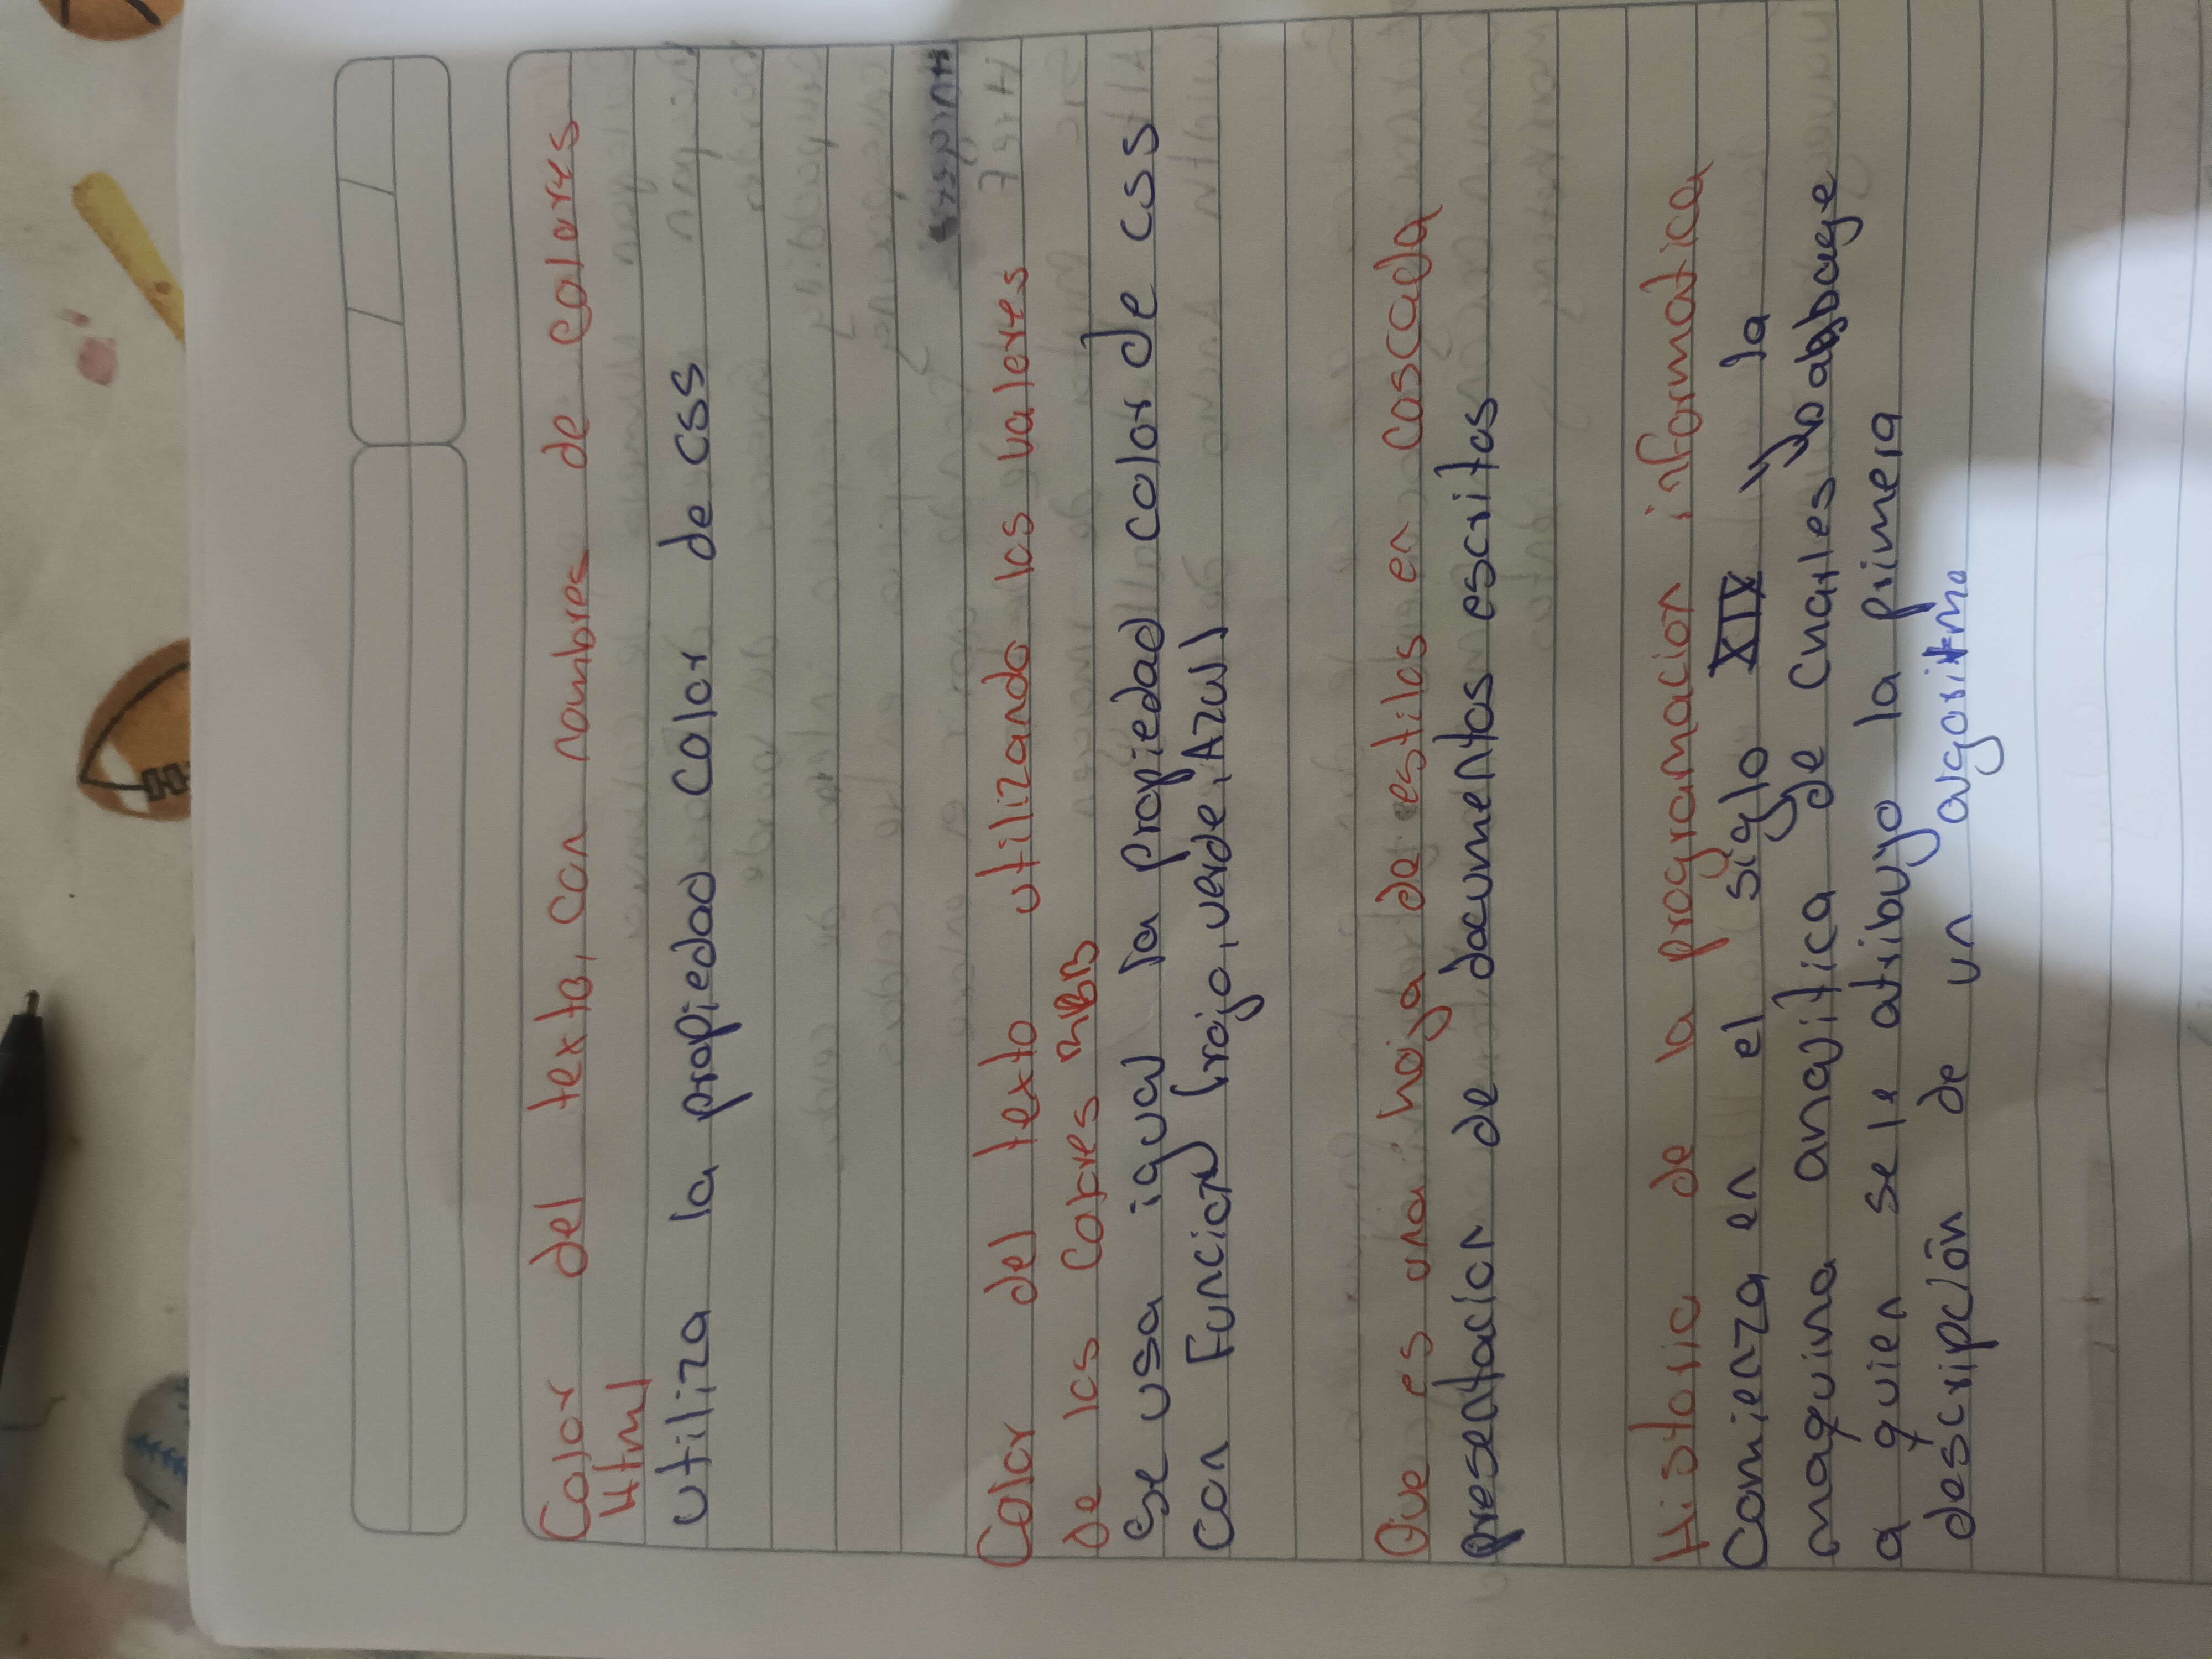 Color del texto, con nombres de colores
Html
utiliza la propiedad color de css
Color del texto utilizando los valeres
de los Cobres
Se usa igual la propiedad color de css
Con Función (rojo, verde, Azul)
Que es una hoja de estilos en cascada
presentación de documentos escritos
Historia de la programación informatica
Comienza en el siglo XIX y la
maquina analitica de Charles babbage
a quien se le atribuyo la primera
descripción de un